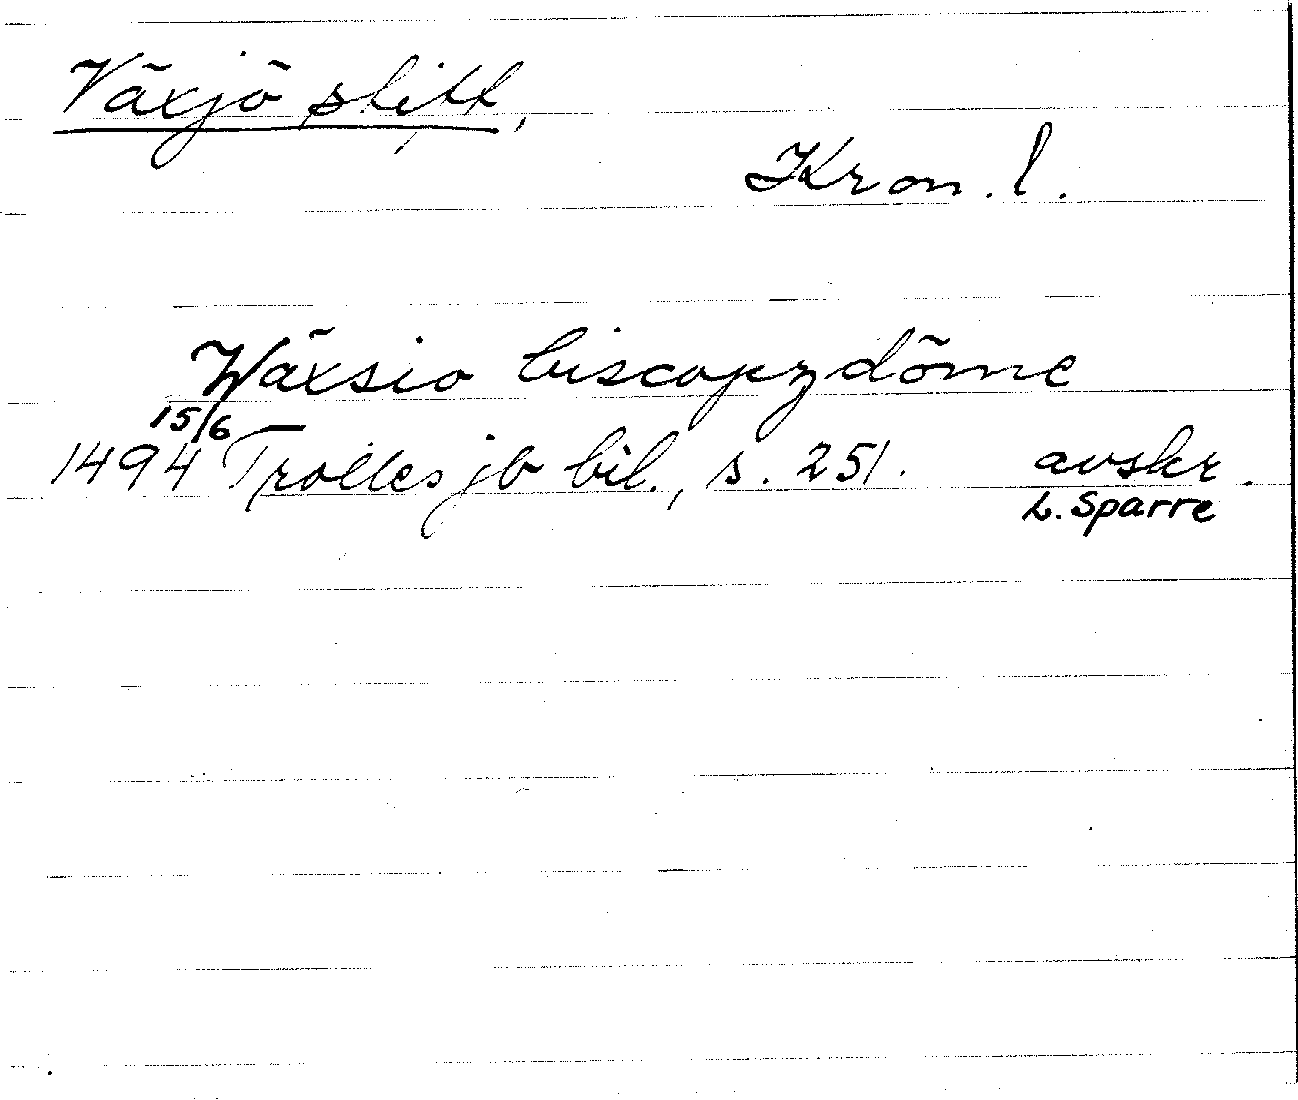 Växjö stift,
Kron. l.
Wäxsio biscopzdöme
15/6
1494 Trolles jb bil., s. 251. avskr.
L. Sparre